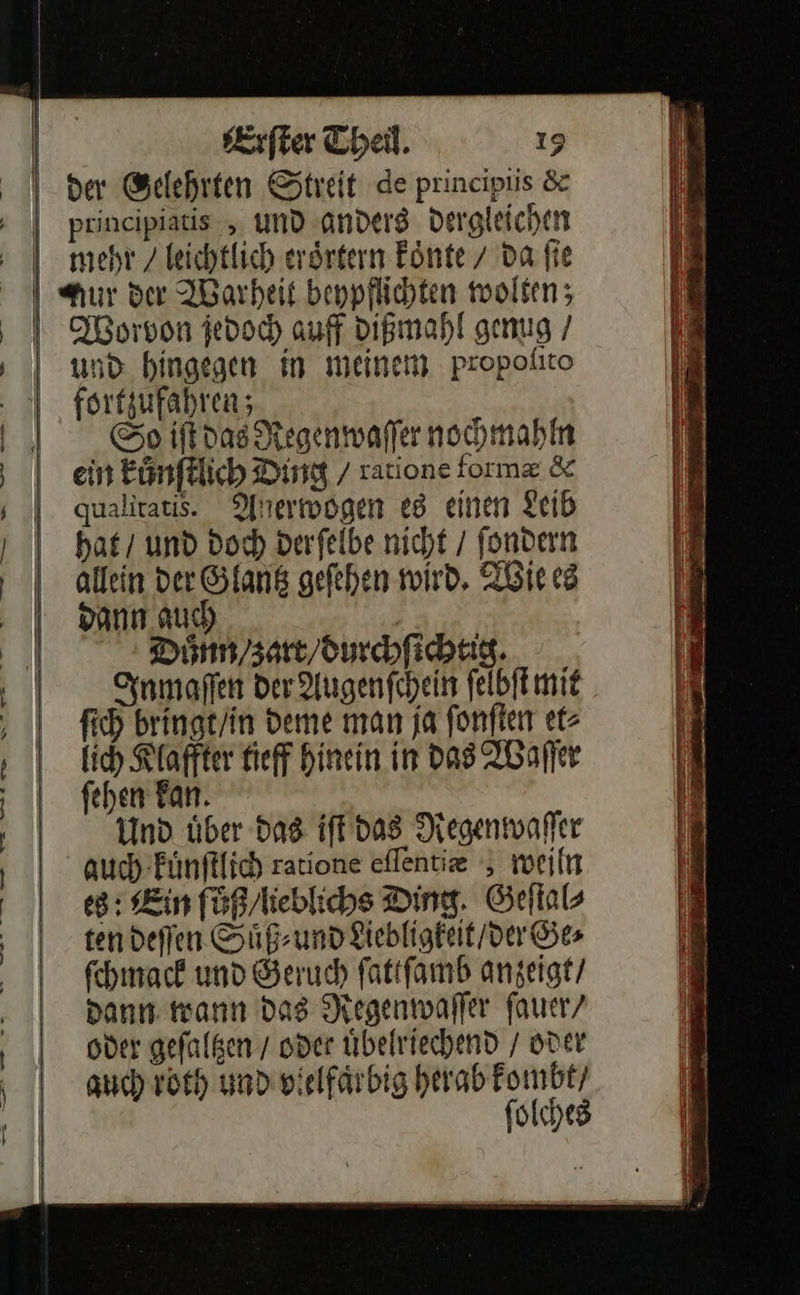 Erſter Theil. 19
der Gelehrten Streit de principiis &
principiatis, und anders dergleichen
mehr / leichtlich eroͤrtern koͤnte / da ſie
nur der Warheit beypflichten wolten;
Worvon jedoch auff dißmahl genug /
und hingegen in meinem propoſito
fortzufahren;
So iſt das Regenwaſſer nochmahln
ein kuͤnſtlich Ding / ratione formæ &
qualitatis. Anerwogen es einen Leib
hat / und doch derſelbe nicht / ſondern
allein der Glantz geſehen wird. Wie es
dann auch
Duͤnn/zart/durchſichtig.
Inmaſſen der Augenſchein ſelbſt mit
ſich bringt/in deme man ja ſonſten et-
lich Klaffter tieff hinein in das Waſſer
ſehen kan.
Und uͤber das iſt das Regenwaſſer
auch kuͤnſtlich ratione eſſentiæ ; weiln
es: Ein ſuͤß/lieblichs Ding. Geſtal-
ten deſſen Suͤß-und Liebligkeit/der Ge-
ſchmack und Geruch ſattſamb anzeigt/
dann wann das Regenwaſſer ſauer/
oder geſaltzen / oder uͤbelriechend / oder
auch roth und vielfaͤrbig herab kombt/
ſolches